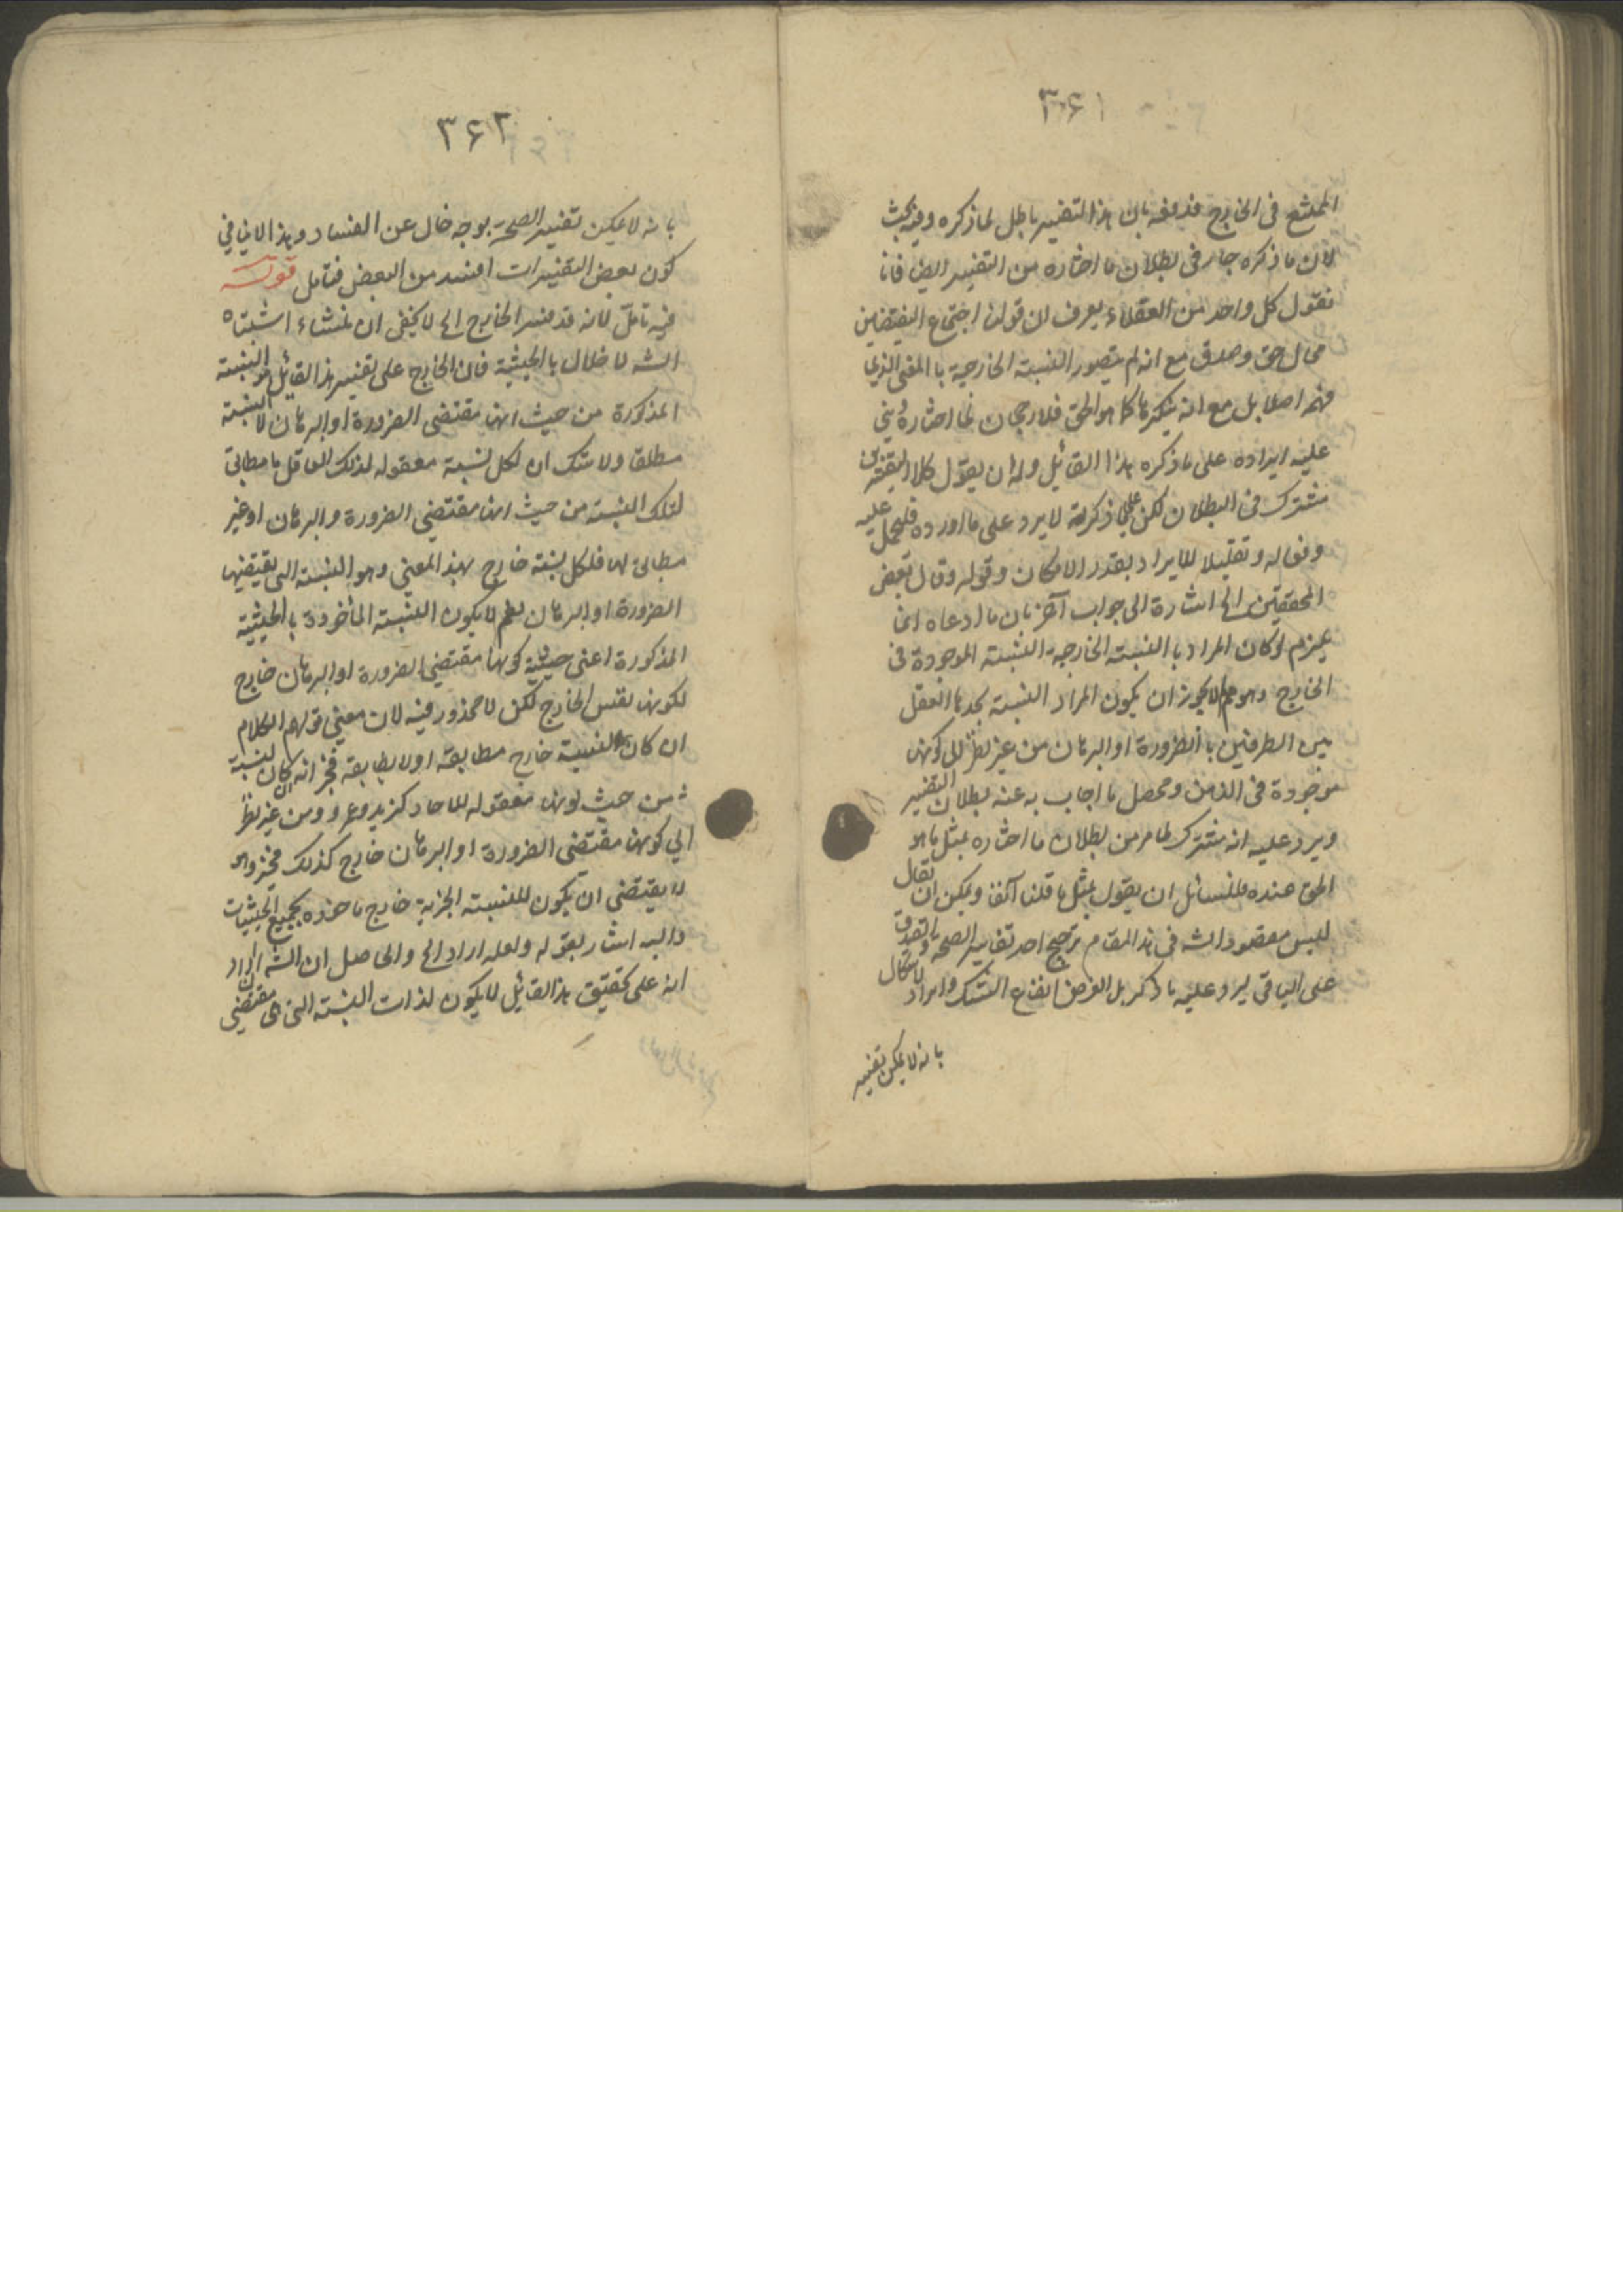 ٣۶١
الممتنع فى الخارج فدفعه بان هذا التفسير باطل لما ذكره وفيه بحث
لان ما ذكره جار فى بطلان ما اختاره من التفسير ايضا فانا
نقول كل واحد من العقلاء يعرف ان قولنا اجتماع النقيضين
محال حق وصدق مع انه لم يتصور النسبته الخارجية با المعنى الذي
فهمه اصلا بل مع انه ينكرها كما هو الحق فلا رجحان لما اختاره
عليه ايراده على ما ذكره هذا القائل وله ان يقول كلا التفسيرين
مشترك فى البطلان لكن على ما ذكرته لا يرد على ما اورده فليحمل عليه
وتقليلا للايراد بقدر الامكان وقوله وقال بعض
المحققين الخ اشارة الى جواب آخر بان ما ادعاه انما
يلزم لو كان المراد با النسبته الخارجية النسبته الموجودة فى
الخارج وهو مم لا يجوز ان يكون المراد النسبته يجدها العقل
بين الطرفين با الضرورة او البرهان من غير نظر الى كونها
موجودة فى الذهن ومحصل ما اجاب به عنه بطلان التفسير
ويرد عليه انه مشترك لما مر من بطلان ما اختاره بمثل ما هو
الحق عنده فللسائل ان يقول بمثل ما قلنا آنفا ويمكن ان يقال
ليس مقصود الشه فى هذا المقام ترجيح احد تفاسير الصحة والصدق
على الباقى ليرد عليه ما ذكر بل الغرض اقناع المشكك وايراد الاشكال
بانه لا يمكن تفسير
٣۶٢
بانه لا يمكن تفسير الصحة بوجه خال عن الفساد وهذا لا ينافي
كون بعض التفسيرات افسد من البعض فتامل قوله
فيه تامل لانه قد فسر الخارج الخ لا يخفى ان منشاء اشتباه
الشه لاخلال با الحيثية فان الخارج على تفسير هذا القائل هو النسبته
المذكورة من حيث انها مقتضى الضرورة او البرهان لا النسبته
مطلقا ولا شك ان لكل نسبة معقوله لذلك العاقل ما مطابق
لتلك النسبته من حيث انها مقتضى الضرورة والبرهان او غير
مطابق لها فلكل نسبته خارج بهذا المعنى وهو النسبته التى يقتضيها
الضرورة او البرهان نعم لا يكون النسبته المأخوذة با الحيثية
المذكورة اعنى حيثية كونها مقتضى الضرورة او البرهان خارج
لكونها نفس الخارج لكن لا محذور فيه لان معنى قولهم الكلام
ان كان لنسبته خارج مطابقه او لا يطابقه فخبر انه ان كان لنسبة
من حيث كونها معقوله للاحاد كزيد وعمرو ومن غير نظر
الي كونها مقتضى الضرورة او البرهان خارج كذلك فخبر وهو
لا يقتضى ان يكون للنسبته الخبرية خارج ماخوذه بجميع الحيثيات
واليه اشار بقوله ولعله اراد الخ والحاصل ان الشه اراد
انه على تحقيق هذا القائل لا يكون لذات النسبته التى هى مقتضى